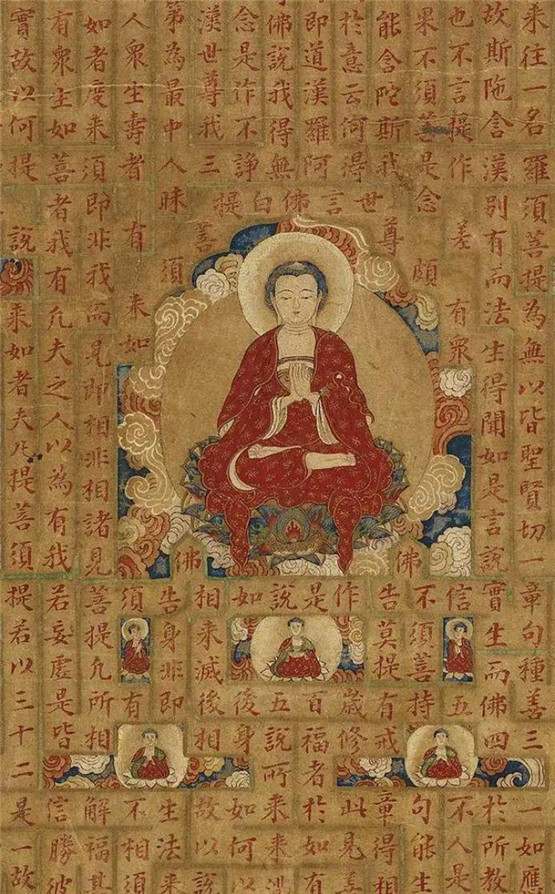 来往一名羅須菩提為無以皆聖賢切一章句種善三一如應
故斯陁含漢別有而法生得聞如是言説實生而佛四於所教
也不言提作差有衆信五不人是
果不須菩是念頗不須菩持句能生
能舍陀斯我尊佛告莫提有戒章得相
於意云何得世作歲修此見善
即道漢羅阿言是百福者於如有
佛説我得無佛説五説所来来
念是作不諍白如後身如何以
漢世尊我三提菩佛相来滅後相故以
第為最中人昧須告身非即生法来
人衆生壽者有来如須有不相須
如者度来須即非我而見即相非相諸見菩提凡所相解福甚
有衆生如菩者我有凡夫之人以為有我若妄虛是皆信勝彼
實故以何提説乘如者夫凡提善須提若以三十二是一故